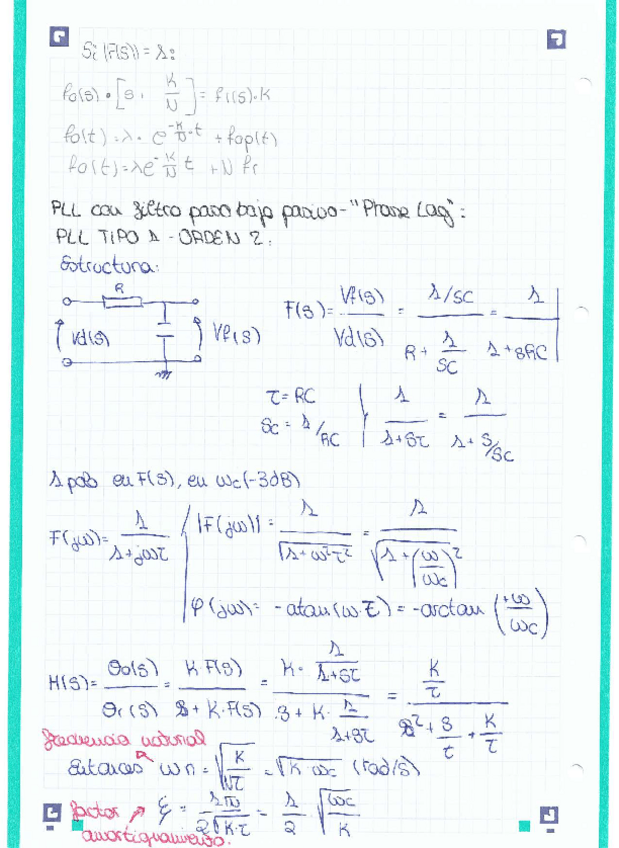 Si |F(s)| = 1:
fo(s) · [s · K/N] = fi(s)·K
fo(t) = λ · e^(-K/N · t) + fop(t)
fo(t) = λe^(-K/N t) + N fr
PLL con filtro paso bajo pasivo - "Phase Lag":
PLL TIPO 1 - ORDEN 2.
Estructura:
R
Vd(s) Vf(s)
F(s) = Vf(s)/Vd(s) = (1/sC)/(R + 1/sC) = 1/(1+sRC)
τ = RC
sc = 1/RC
1/(1+sτ) = 1/(1+s/sc)
1 polo en F(s), en ωc(-3dB)
F(jω) = 1/(1+jωτ)
|F(jω)| = 1/√(1+ω²τ²) = 1/√(1+(ω/ωc)²)
φ(jω) = -atan(ω·τ) = -arctan(+ω/ωc)
H(s) = θo(s)/θr(s) = K·F(s)/(s + K·F(s)) = (K · 1/(1+sτ))/(s + K · 1/(1+sτ)) = (K/τ)/(s² + s/τ + K/τ)
frecuencia natural
Entonces ωn = √(K/τ) = √(K·ωc) (rad/s)
factor → ξ = 1/(2√(K·τ)) = 1/2 √(ωc/K)
amortiguamiento.